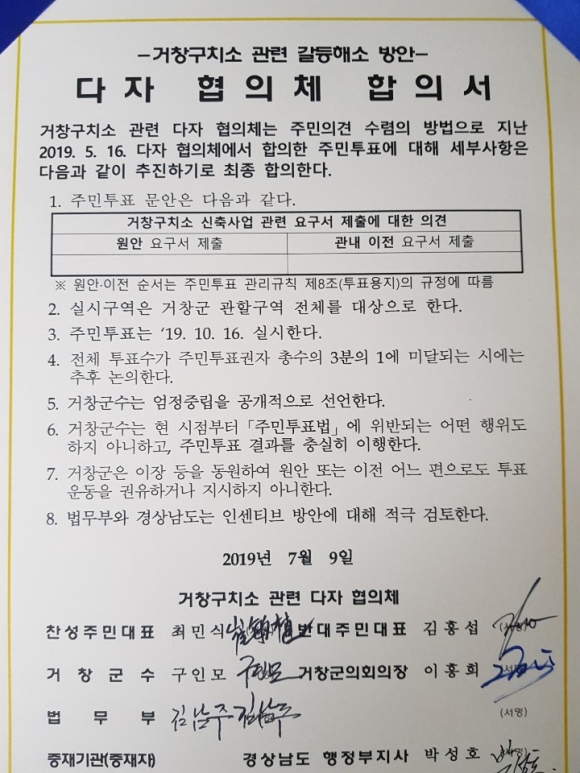 -거창구치소 관련 갈등해소 방안-
다자 협의체 합의서
거창구치소 관련 다자 협의체는 주민의견 수렴의 방법으로 지난
2019. 5. 16. 다자 협의체에서 합의한 주민투표에 대해 세부사항은
다음과 같이 추진하기로 최종 합의한다.
1. 주민투표 문안은 다음과 같다.
거창구치소 신축사업 관련 요구서 제출에 대한 의견
원안 요구서 제출 관내 이전 요구서 제출
※ 원안·이전 순서는 주민투표 관리규칙 제8조(투표용지)의 규정에 따름
2. 실시구역은 거창군 관할구역 전체를 대상으로 한다.
3. 주민투표는 '19. 10. 16. 실시한다.
4. 전체 투표수가 주민투표권자 총수의 3분의 1에 미달되는 시에는
추후 논의한다.
5. 거창군수는 엄정중립을 공개적으로 선언한다.
6. 거창군수는 현 시점부터 「주민투표법」에 위반되는 어떤 행위도
하지 아니하고, 주민투표 결과를 충실히 이행한다.
7. 거창군은 이장 등을 동원하여 원안 또는 이전 어느 편으로도 투표
운동을 권유하거나 지시하지 아니한다.
8. 법무부와 경상남도는 인센티브 방안에 대해 적극 검토한다.
2019년 7월 9일
거창구치소 관련 다자 협의체
찬성주민대표 최민식 반대주민대표 김홍섭
거창군수 구인모 구인모 거창군의회의장 이홍희
법무부 김남주 김남주 (서명)
중재기관(중재자) 경상남도 행정부지사 박성호